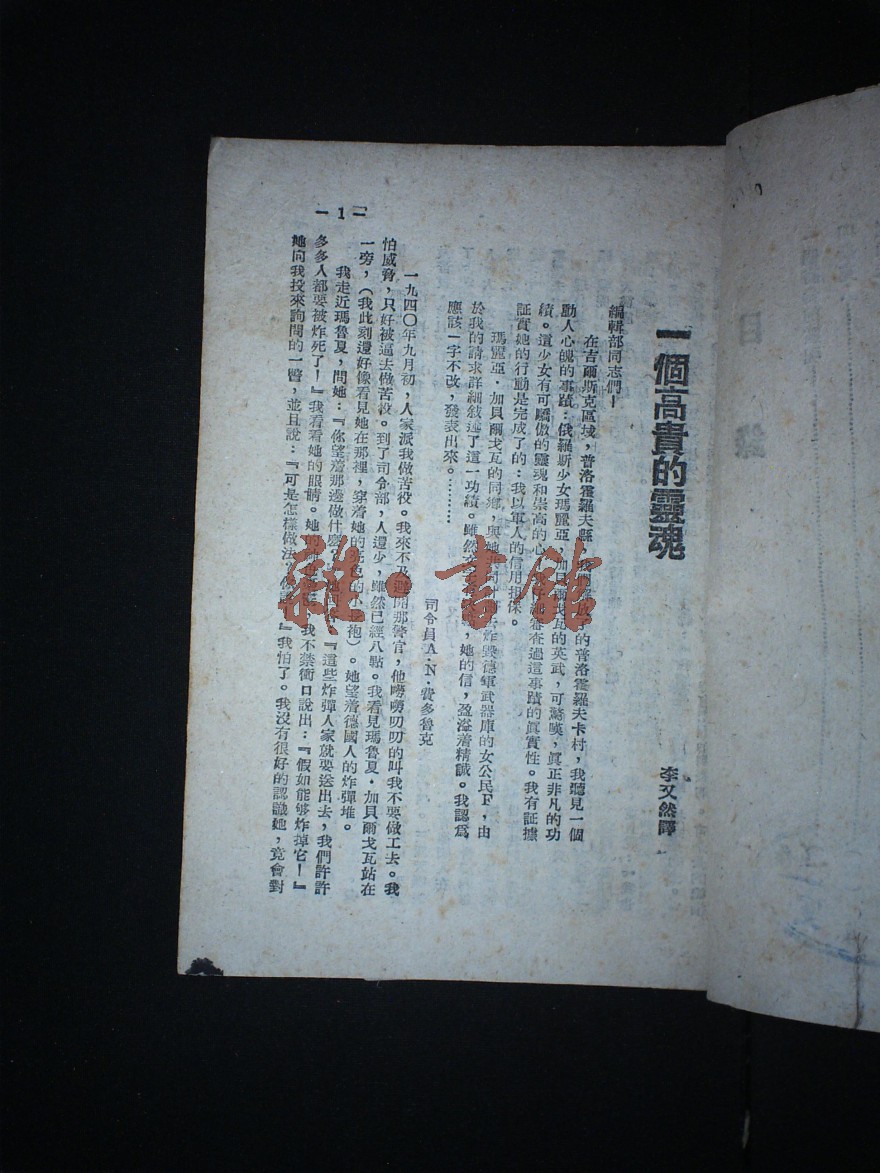 一個高貴的靈魂
李又然譯
編輯部同志們！
在吉爾斯克區域，普洛霍羅夫縣，我們解放了的普洛霍羅夫卡村，我聽見一個
動人心魄的事蹟：俄羅斯少女瑪麗亞，加貝爾戈瓦的英武，可驚嘆，眞正非凡的功
績。這少女有可驕傲的靈魂和崇高的心 審査過這事蹟的眞實性。我有証據
証實她的行動是完成了的：我以軍人的信用担保。
瑪麗亞．加貝爾戈瓦的同鄉，與她 炸毀德軍武器庫的女公民F，由
於我的請求詳細敍述了這一功績。雖然 ，她的信，盈溢着精誠。我認爲
應該一字不改，發表出來。………
司令員A．N．費多魯克
一九四〇年九月初，人家派我做苦役。我來不及避開那警官，他嘮嘮叨叨的叫我不要做工去。我
怕威脅，只好被逼去做苦役。到了司令部，人還少，雖然已經八點。我看見瑪魯夏．加貝爾戈瓦站在
一旁，（我此刻還好像看見她在那裡，穿着她的 色的小 袍）。她望着德國人的炸彈堆。
我走近瑪魯夏，問她：『你望着那邊做什麼 『這些炸彈人家就要送出去，我們許許
多多人都要被炸死了！』我看看她的眼睛。她的 我不禁衝口說出：『假如能够炸掉它！』
她向我投來詢問的一瞥，並且說：『可是怎樣做法 』我怕了。我沒有很好的認識她，竟會對
— 1 —
雜·書館